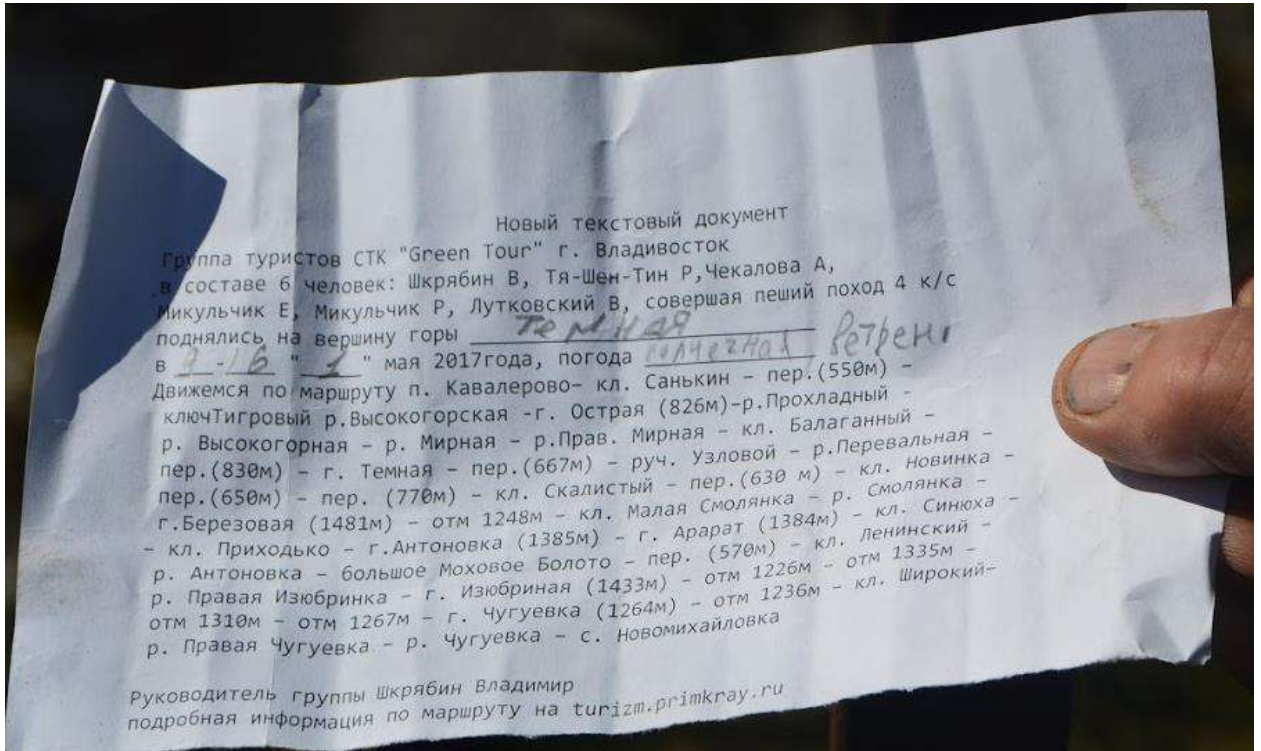 Новый текстовый документ
Группа туристов СТК "Green Tour" г. Владивосток
в составе 6 человек: Шкрябин В, Тя-Шен-Тин Р,Чекалова А,
Микульчик Е, Микульчик Р, Лутковский В, совершая пеший поход 4 к/с
поднялись на вершину горы Темная
в 9-16 "1" мая 2017года, погода солнечная Ветрено
Движемся по маршруту п. Кавалерово– кл. Санькин – пер.(550м) –
ключТигровый р.Высокогорская -г. Острая (826м)–р.Прохладный -
р. Высокогорная – р. Мирная – р.Прав. Мирная – кл. Балаганный –
пер.(830м) – г. Темная – пер.(667м) – руч. Узловой – р.Перевальная –
пер.(650м) – пер. (770м) – кл. Скалистый – пер.(630 м) – кл. Новинка –
г.Березовая (1481м) – отм 1248м – кл. Малая Смолянка – р. Смолянка –
– кл. Приходько – г.Антоновка (1385м) – г. Арарат (1384м) – кл. Синюха –
р. Антоновка – большое Моховое Болото – пер. (570м) – кл. Ленинский –
р. Правая Изюбринка – г. Изюбриная (1433м) – отм 1226м – отм 1335м –
отм 1310м – отм 1267м – г. Чугуевка (1264м) – отм 1236м – кл. Широкий–
р. Правая Чугуевка – р. Чугуевка – с. Новомихайловка
Руководитель группы Шкрябин Владимир
подробная информация по маршруту на turizm.primkray.ru